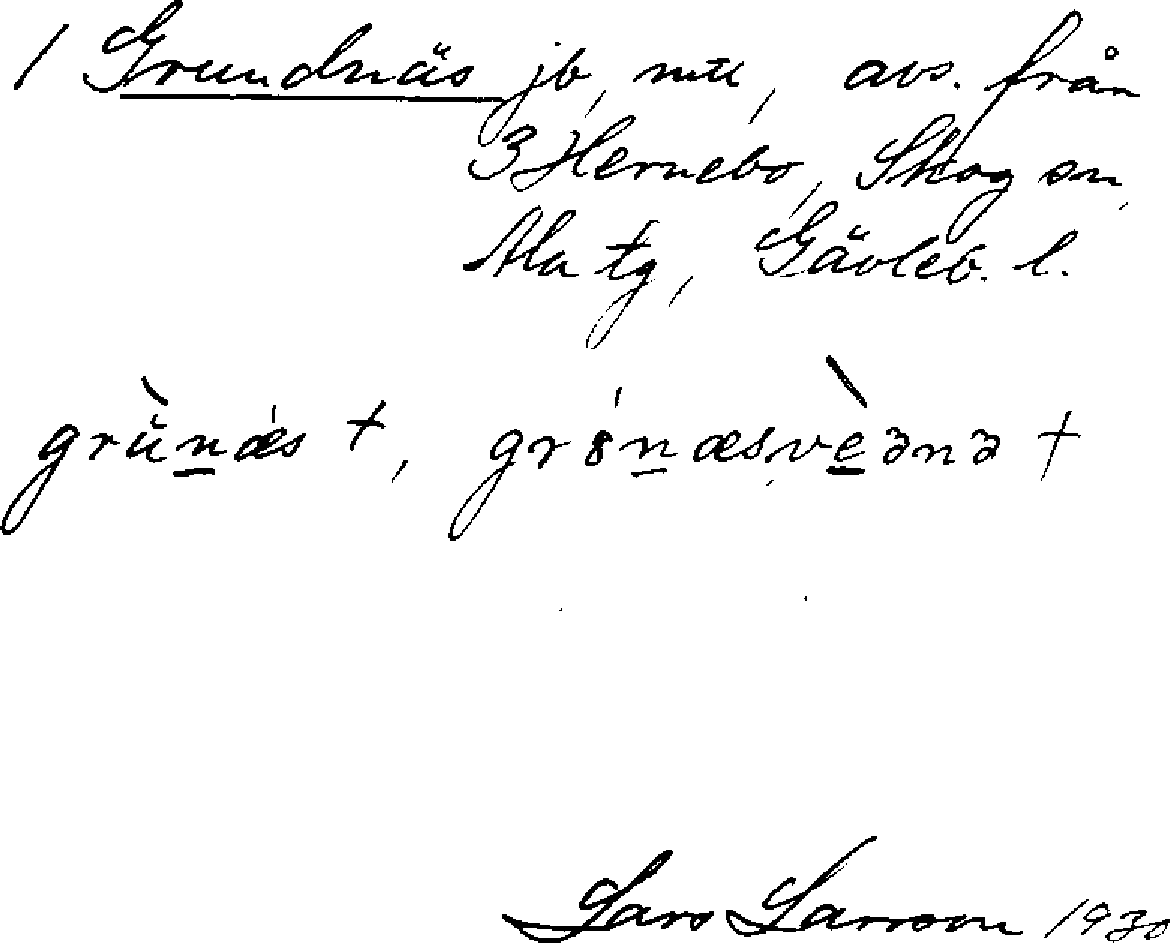 1 Grundnäs jb, mtl, avs. från
3 Hernebo, Skog sn,
Ala tg, Gävleb. l.
grùn̲æ̍s +, gró̍n̲æs,vè̲ənə +
Lars Larsson 1930